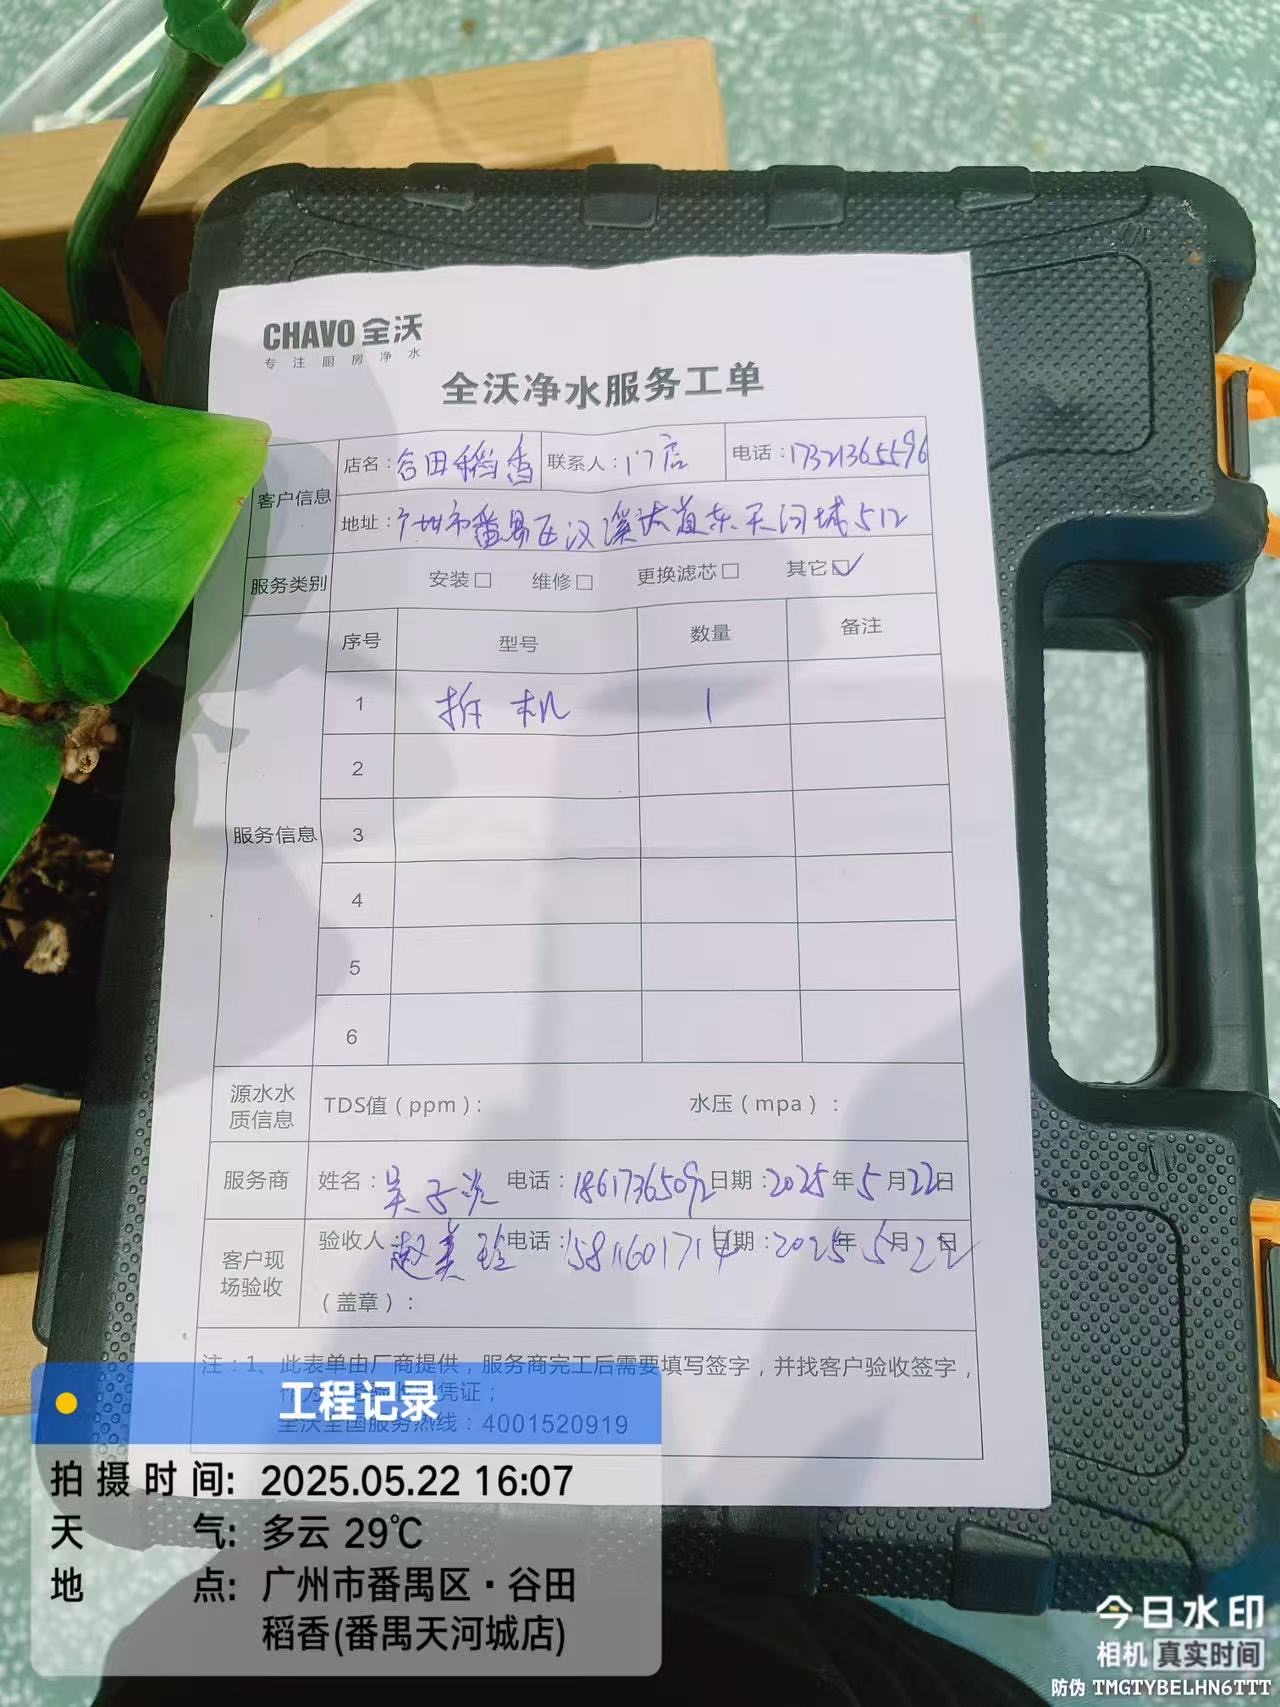 CHAVO 全沃
专注厨房净水
全沃净水服务工单
客户信息
店名：谷田稻香 联系人：门店 电话：17321365596
地址：广州市番禺区汉溪大道东天河城512
服务类别 安装□ 维修□ 更换滤芯□ 其它☑
服务信息
序号 型号 数量 备注
1 拆机 1
2
3
4
5
6
源水水质信息 TDS值（ppm）： 水压（mpa）：
服务商 姓名：吴子 电话：18617365092 日期：2025年5月22日
客户现场验收 验收人 赵美玲 电话：15811601714 日期：2025年5月22日
（盖章）：
注：1、此表单由厂商提供，服务商完工后需要填写签字，并找客户验收签字，
凭证；
全沃全国服务热线：4001520919
工程记录
拍摄时间: 2025.05.22 16:07
天气: 多云 29℃
地点: 广州市番禺区·谷田
稻香(番禺天河城店)
今日水印
相机 真实时间
防伪 TMGTYBELHN6TTT